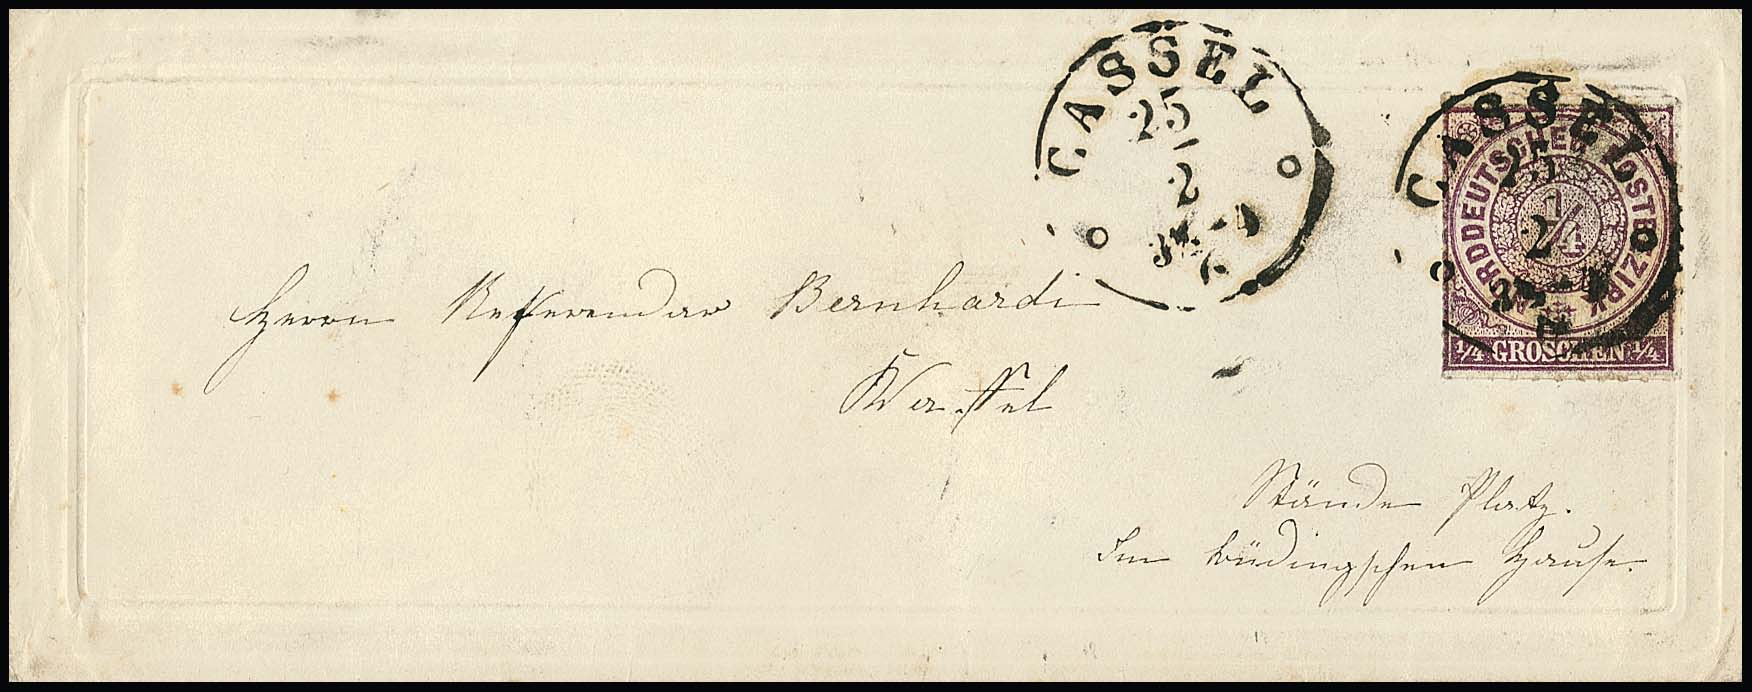 CASSEL
25
2
CASSEL
25
2
NORDDEUTSCHER POSTBEZIRK
1/4
1/4 GROSCHEN 1/4
Herrn Referendar Bernhardi
Kassel
Stände Platz.
Im Büdingschen Hause.